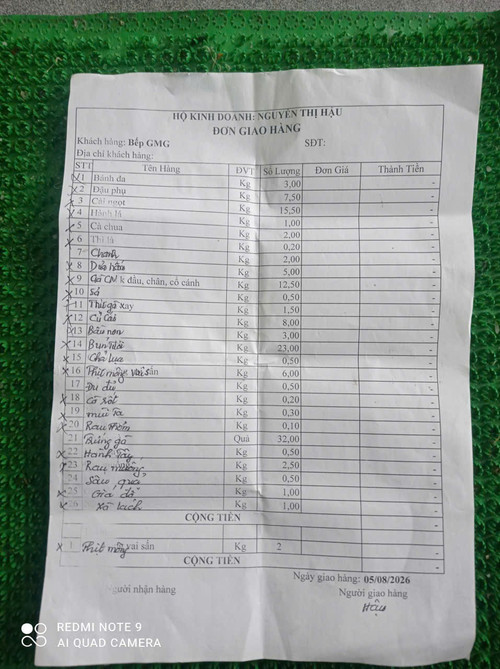 HỘ KINH DOANH: NGUYỄN THỊ HẬU
ĐƠN GIAO HÀNG
Khách hàng: Bếp GMG SĐT:
Địa chỉ khách hàng:
STT Tên Hàng ĐVT Số Lượng Đơn Giá Thành Tiền
x 1 Bánh đa Kg 3,00 -
x 2 Đậu phụ Kg 7,50 -
x 3 Cải ngọt Kg 15,50 -
x 4 Hành lá Kg 1,00 -
x 5 Cà chua Kg 2,00 -
x 6 Thì là Kg 0,20 -
7 Chanh Kg 2,00 -
x 8 Dưa Kg 5,00 -
x 9 Gà CN k đầu, chân, cổ cánh Kg 12,50 -
x 10 Sả Kg 0,50 -
x 11 Thịt gà xay Kg 1,50 -
x 12 Củ cải Kg 8,00 -
x 13 Bầu non Kg 3,00 -
x 14 Bún Kg 23,00 -
x 15 Chả lụa Kg 0,50 -
x 16 Thịt mông vai sấn Kg 6,00 -
17 Đu đủ Kg 0,50 -
x 18 Cà rốt Kg 0,20 -
19 mùi ta Kg 0,30 -
x 20 Rau thơm Kg 0,10 -
21 Trứng gà Quả 32,00 -
x 22 Hành tây Kg 0,50 -
x 23 Rau muống Kg 2,50 -
24 Sấu quả Kg 0,50 -
x 25 Giá đỗ Kg 1,00 -
x 26 Xà lách Kg 1,00 -
CỘNG TIỀN -
x 1 Thịt mông vai sấn Kg 2 -
CỘNG TIỀN -
Ngày giao hàng: 05/08/2026
Người nhận hàng Người giao hàng
Hậu
REDMI NOTE 9
AI QUAD CAMERA